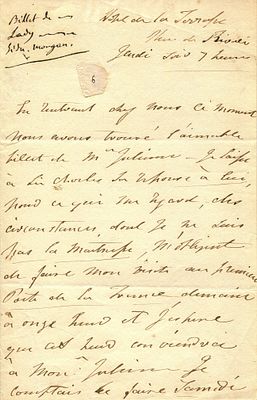 Billet de
Lady
Morgan.
6
Hôtel de la Terrasse
Rue de Rivoli
Jeudi Soir 7 heures
En rentrant chez nous ce moment
nous avons trouvé l'aimable
billet de Mr Julien Je laisse
à Sir Charles Sa réponse à lui,
des
circonstances, dont je ne suis
pas la maitresse, M'obligent
de faire mon visite au premier
Poëte de la France demain
à onze heures et J'espère
que cet heure conviendra
à Monr Julien Je
comptais de faire Samedi